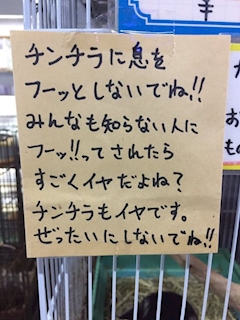 チンチラに息を
フーッとしないでね!!
みんなも知らない人に
フーッ!!ってされたら
すごくイヤだよね?
チンチラもイヤです。
ぜったいにしないでね!!